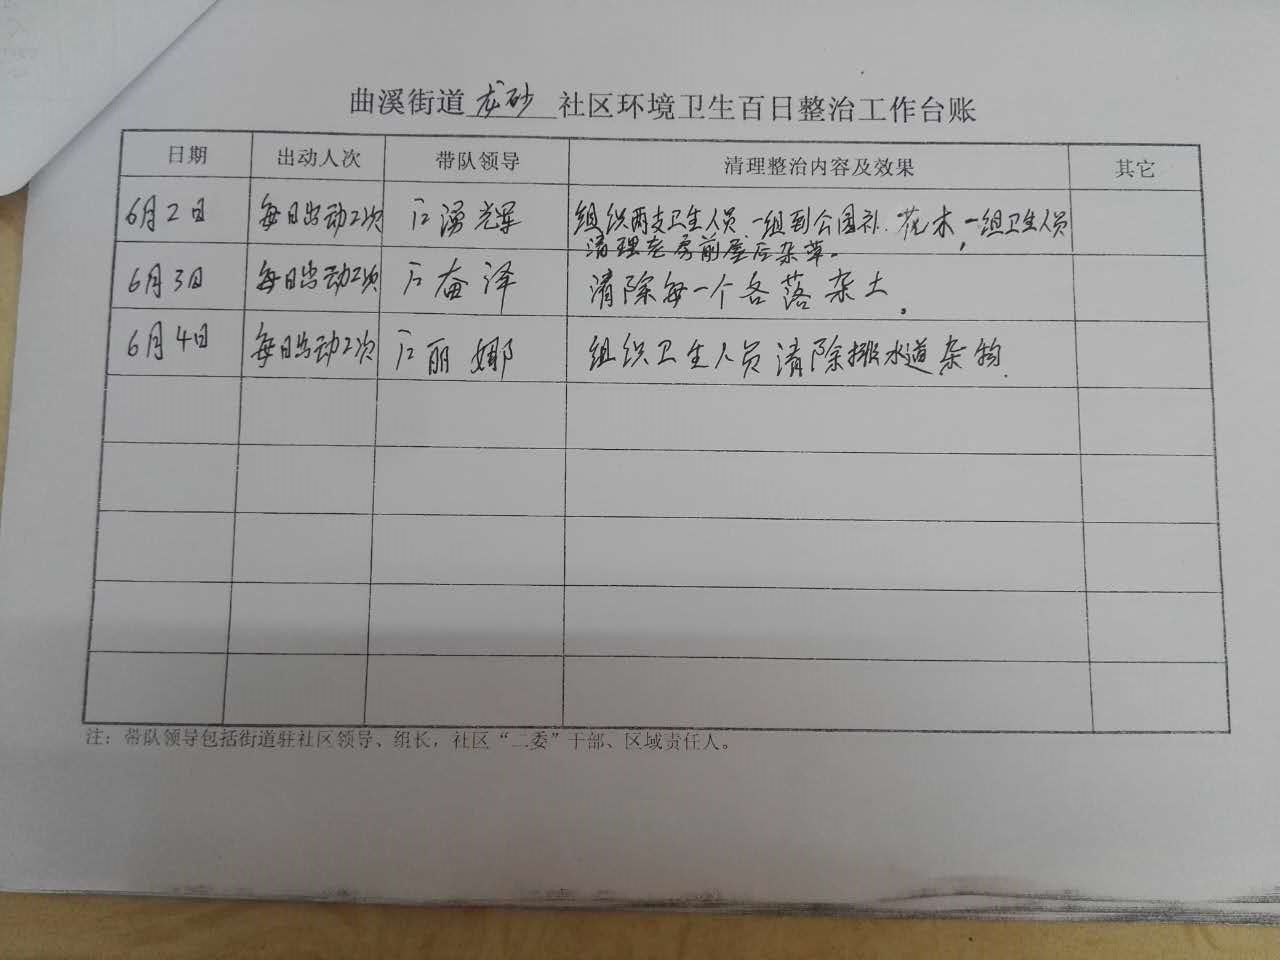 曲溪街道 龙砂 社区环境卫生百日整治工作台账
日期 出动人次 带队领导 清理整治内容及效果 其它
6月2日 每日出动2次 湧辉 组织两支卫生人员.一组到公园补.花木,一组卫生人员
清理 房前屋后杂草。
6月3日 每日出动2次 奋泽 清除每一个各落杂土。
6月4日 每日出动2次 丽娜 组织卫生人员清除排水道杂物.
注：带队领导包括街道驻社区领导、组长，社区“二委”干部、区域责任人。